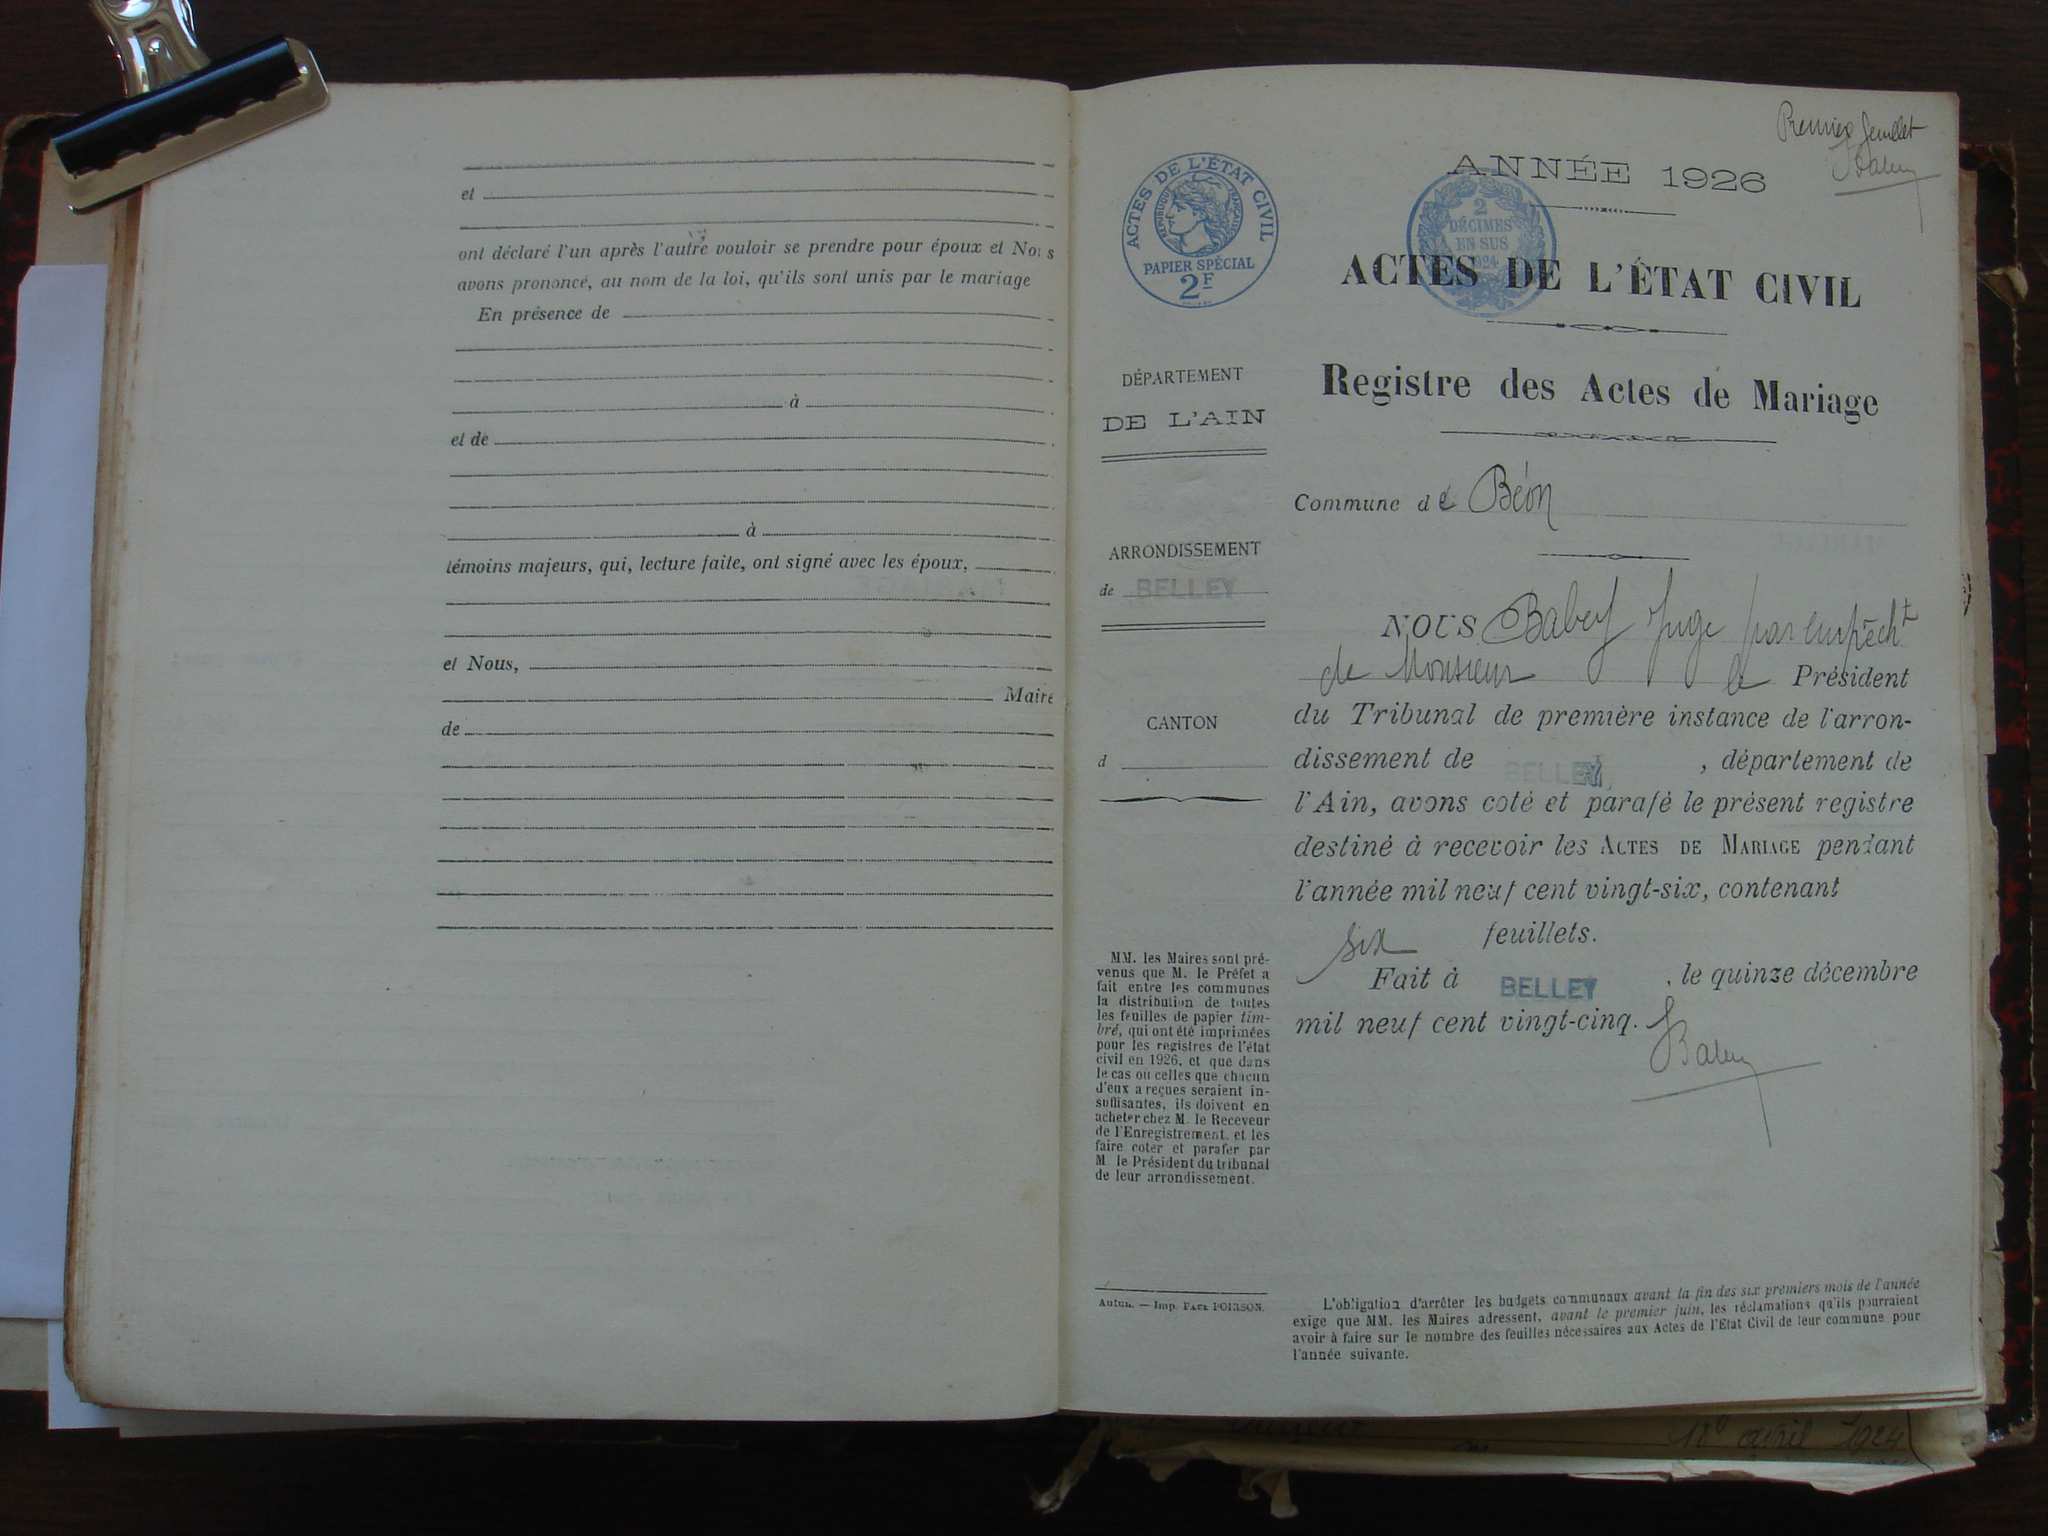 et
ont déclaré l'un après l'autre vouloir se prendre pour époux et Nous
avons prononcé, au nom de la loi, qu'ils sont unis par le mariage
En présence de
à
et de
à
témoins majeurs, qui, lecture faite, ont signé avec les époux,
et Nous,
Maire
de
Premier feuillet
ANNÉE 1926
ACTES DE L'ÉTAT CIVIL
RÉPUBLIQUE FRANÇAISE
PAPIER SPÉCIAL
2F
2
DÉCIMES
EN SUS
1924
ACTES DE L'ÉTAT CIVIL
Registre des Actes de Mariage
DÉPARTEMENT
DE L'AIN
Commune de Béon
ARRONDISSEMENT
de BELLEY
CANTON
d
NOUS Babey Juge par empêcht
de Monsieur le Président
du Tribunal de première instance de l'arron-
dissement de BELLEY, département de
l'Ain, avons coté et parafé le présent registre
destiné à recevoir les ACTES DE MARIAGE pendant
l'année mil neuf cent vingt-six, contenant
six feuillets.
Fait à BELLEY, le quinze décembre
mil neuf cent vingt-cinq.
Babey
MM. les Maires sont pré-
venus que M. le Préfet a
fait entre les communes
la distribution de toutes
les feuilles de papier tim-
bré, qui ont été imprimées
pour les registres de l'état
civil en 1926, et que dans
le cas où celles que chacun
d'eux a reçues seraient in-
suffisantes, ils doivent en
acheter chez M. le Receveur
de l'Enregistrement, et les
faire coter et parafer par
M. le Président du tribunal
de leur arrondissement.
Autun. — Imp. PAUL POIRSON.
L'obligation d'arrêter les budgets communaux avant la fin des six premiers mois de l'année
exige que MM. les Maires adressent, avant le premier juin, les réclamations qu'ils pourraient
avoir à faire sur le nombre des feuilles nécessaires aux Actes de l'État Civil de leur commune pour
l'année suivante.
avril 1924